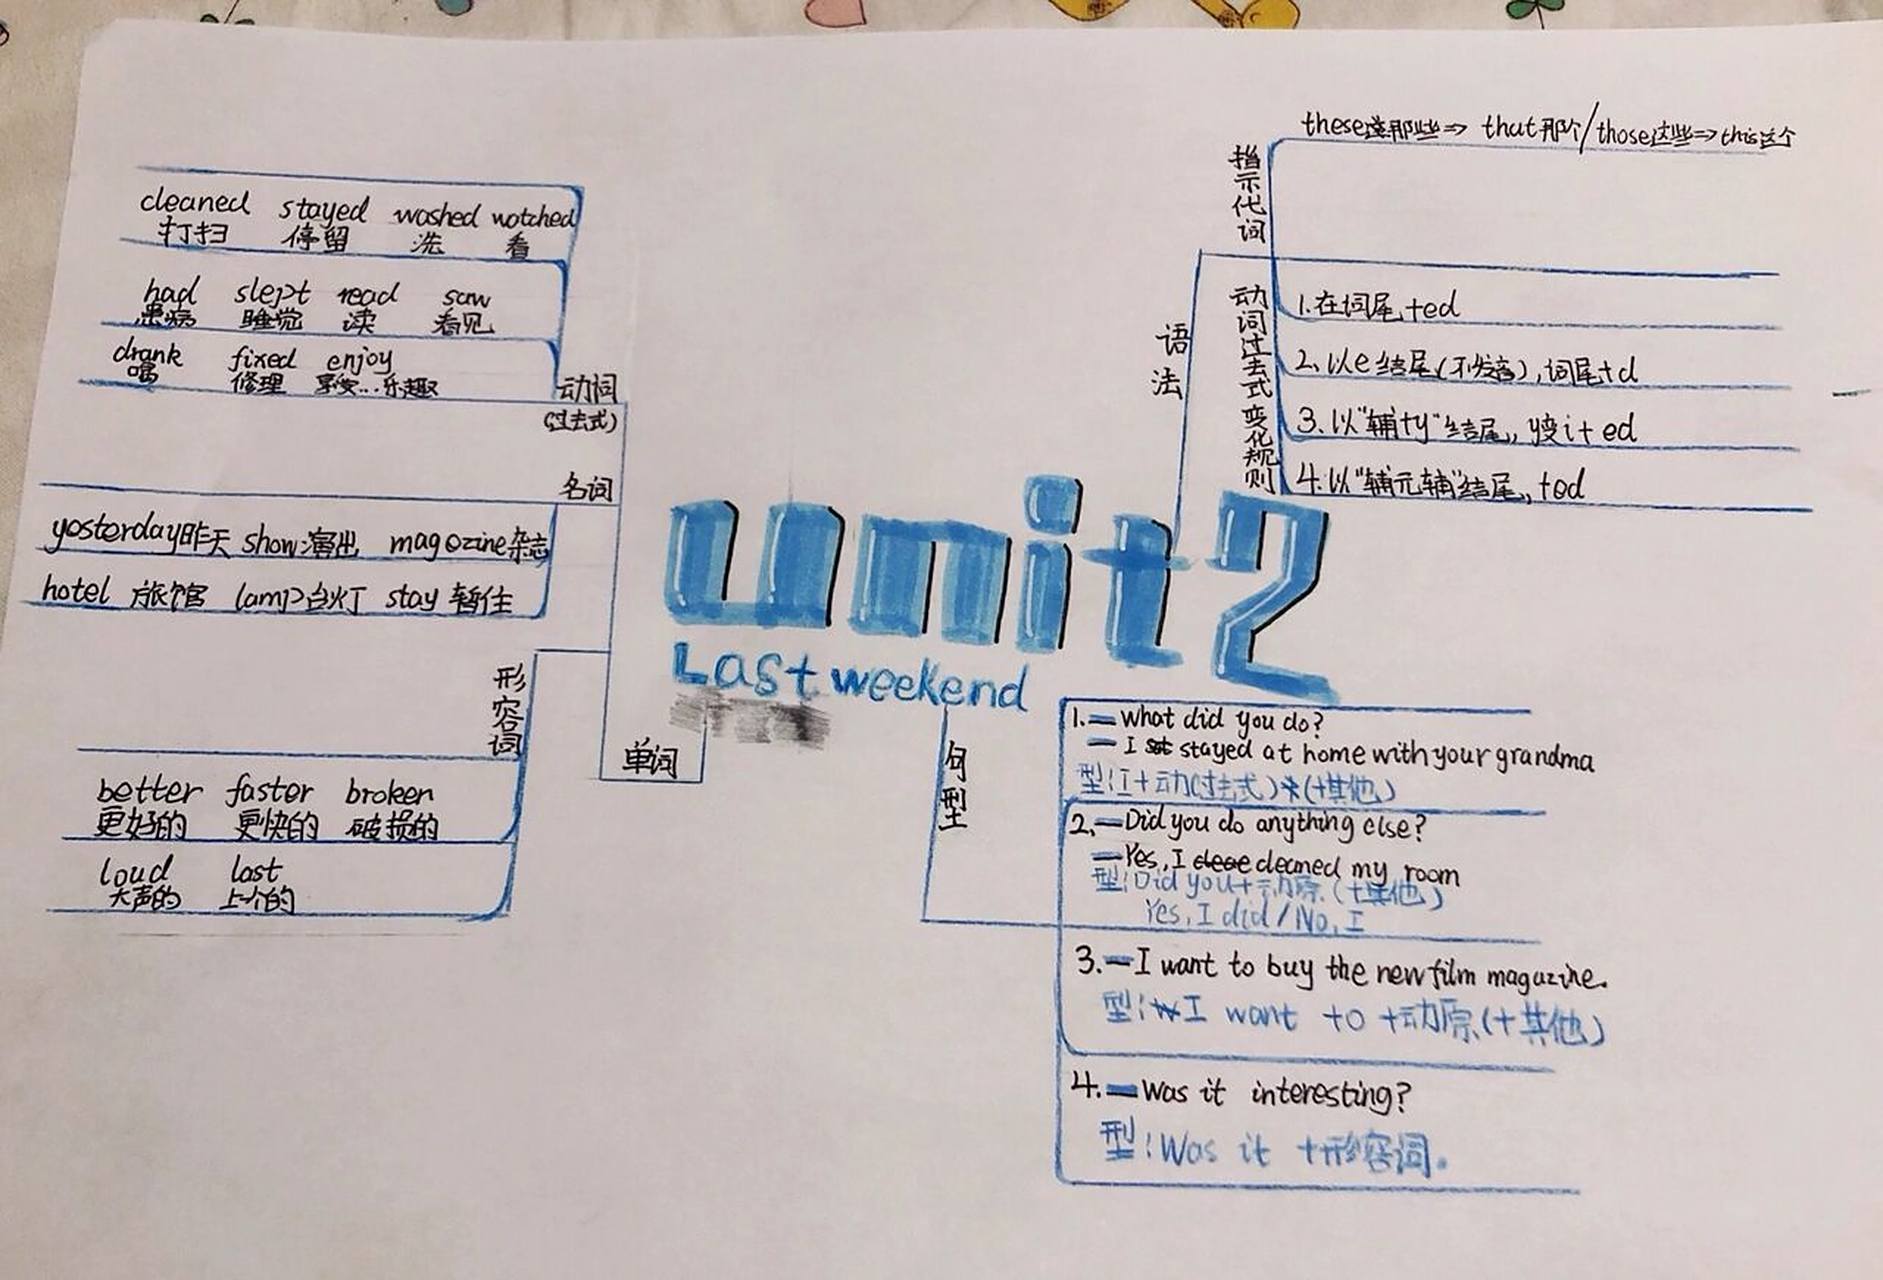 cleaned stayed washed watched
打扫 停留 洗 看
had slept read saw
患病 睡觉 读 看见
drank fixed enjoy
喝 修理 享受…乐趣
动词
(过去式)
名词
yosterday昨天 show演出 magozine杂志
hotel 旅馆 lamp台灯 stay 暂住
形容词
better faster broken
更好的 更快的 破损的
loud last
大声的 上个的
单词
unit2
Last weekend
语法
指示代词
these那些⇒ that那个/those这些⇒this这个
动词过去式变化规则
1.在词尾+ed
2.以e结尾(不发音),词尾+d
3.以"辅+y"结尾,y变i+ed
4.以"辅元辅"结尾,+ed
句型
1.—what did you do?
—I stayed at home with your grandma
型:I+动(过去式)(+其他)
2.—Did you do anything else?
—Yes,I cleaned my room
型:Did you+动原(+其他)
Yes,I did/No,I
3.—I want to buy the new film magazine.
型:I want to +动原(+其他)
4.—Was it interesting?
型:Was it +形容词.